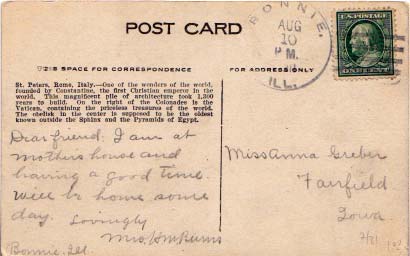 POST CARD
BONNIE,
AUG
10
P M.
ILL.
U.S. POSTAGE
ONE CENT
THIS SPACE FOR CORRESPONDENCE
FOR ADDRESS ONLY
St. Peters, Rome, Italy.—One of the wonders of the world,
founded by Constantine, the first Christian emperor in the
world. This magnificent pile of architecture took 1,300
years to build. On the right of the Colonades is the
Vatican, containing the priceless treasures of the world.
The obelisk in the center is supposed to be the oldest
known outside the Sphinx and the Pyramids of Egypt.
Dear friend. I am at
mothers house and
having a good time.
Will be home some
day. Lovingly
Mrs. Wm Burns
Bonnie, Ill.
Miss Anna Greber
Fairfield
Iowa